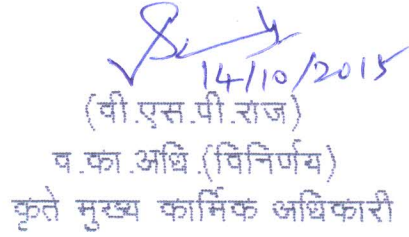 14/10/2015
(वी.एस.पी.राज)
व.का.अधि.(विनिर्णय)
कृते मुख्य कार्मिक अधिकारी